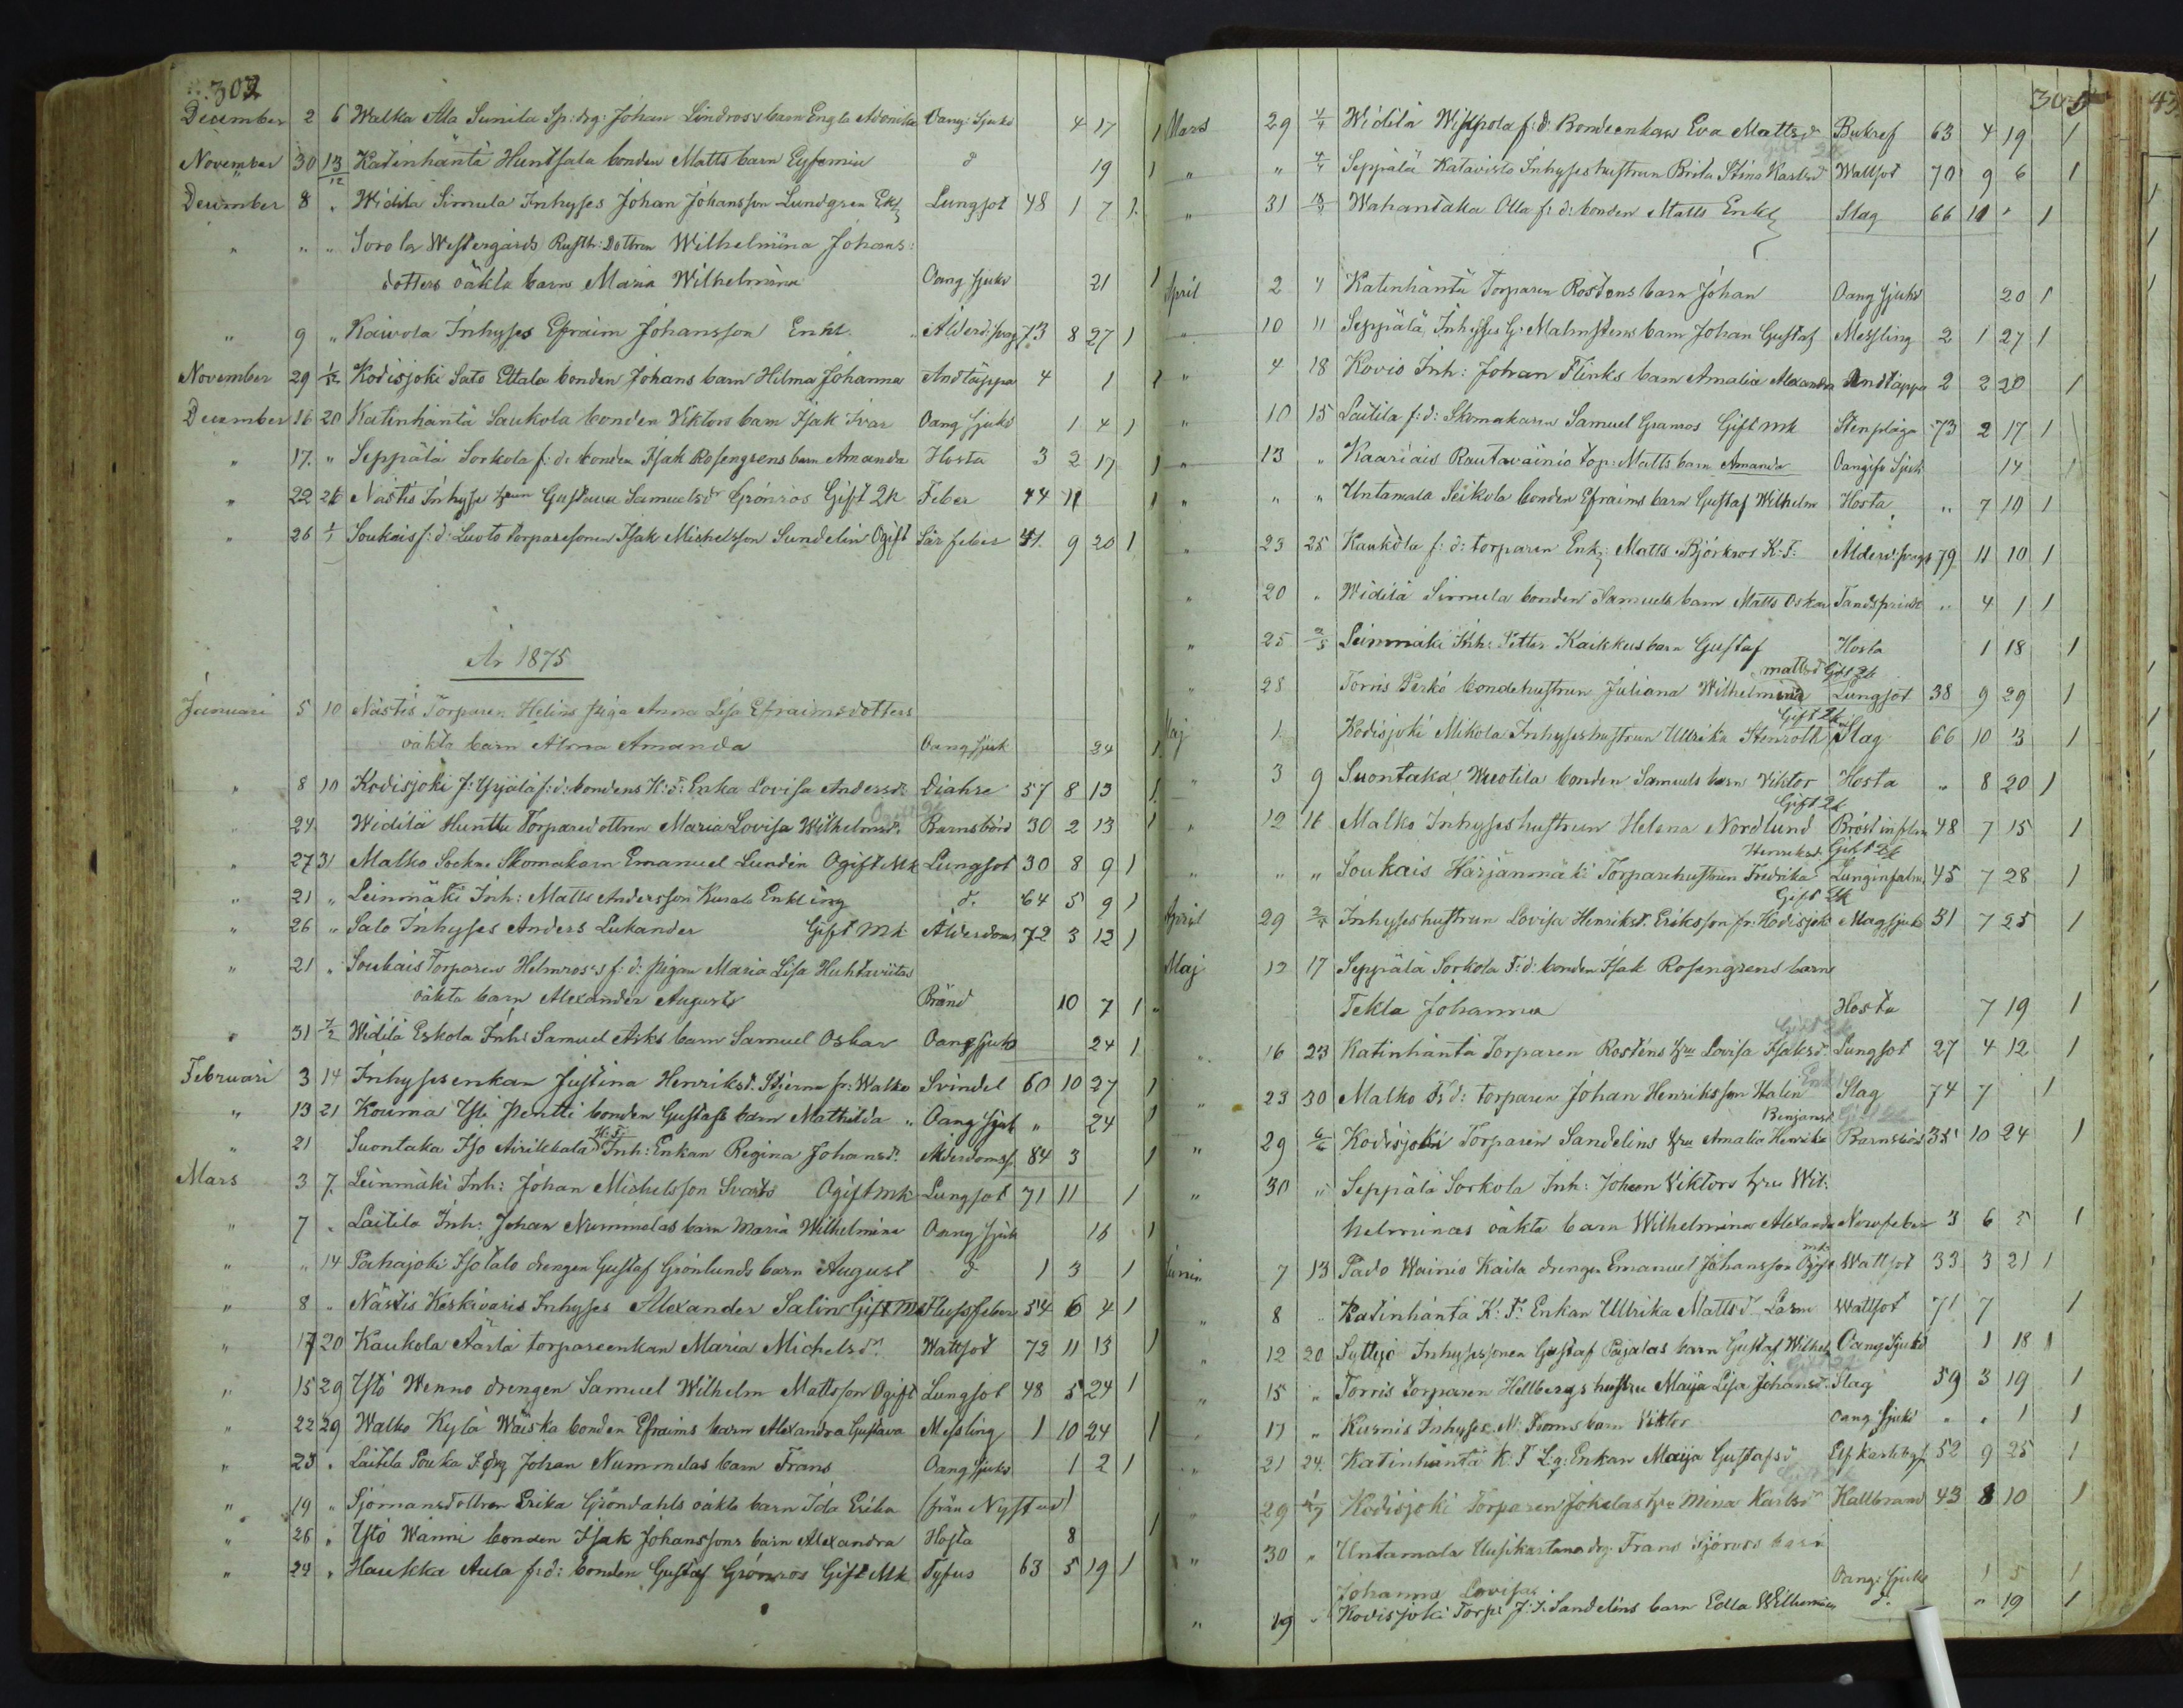 302
December 2 6 Walka Ala Sunila Sp: drg: Johan Lindross barn Engla Adonika Oang: Sjukd 4 17 1
November 30 13/12 Katinhäntä Huntsala bonden Matts barn Eufemia d 19 1
December 8 " Widilä Simula Inhyses Johan Johansson Lundgren Enkl Lungsot 48 1 7 1
" " " Westergårds Rusth: Dottren Wilhelmina Johans:
dotters oäkta barn Maria Wilhelmina Oang Sjukd 21 1
" 9 " Kaivola Inhyses Efraim Johansson Enkl. Ålderd. svag 73 8 27 1
November 29 Kodisjoki Sato Ettala bonden Johans barn Hilma Johanna Andtäppa 4 1 1
December 16 20 Katinhäntä Laukola bonden Viktors barn Isak Ivar Oang Sjukd 1 4 1
" 17. " Seppälä Sorkola f: d: bonden Isak Rosengrens barn Amanda Hosta 3 2 17 1
" 22 26 Nästis Inhyses Gustava Samuelsdr Grönroos Gift Qk Feber 44 11 1
" 26 Soukais f: d: Luoto torparesonen Isak Michelsson Sundelin Ogift Sår feber 41 9 20 1
År 1875
Januari 5 10 Nästis Torparen Helins piga Anna Lisa Efraimsdotters
oäkta barn Alma Amanda Oang Sjuk 24 1
" 8 10 Kodisjoki f: d: bondens Enka Lovisa Andersdr Diahre 57 8 13 1
" 24 Widilä Hunttu Torparedottren Maria Lovisa Wilhelmsdr. Barnsbörd 30 2 13 1
" 27 31 Malko Skomakarn Emanuel Lundin Ogift Mk Lungsot 30 8 9 1
" 21 " Leinmäki Inh: Matts Andersson Enkling d. 64 5 9 1
" 26 " Salo Inhyses Anders Lukander Gift Mk Ålderdoms 72 3 12 1
" 21 " Soukais Torparen Helmroos's f: d: pigan Maria Lisa Huhtaviitas
oäkta barn Alexander August Bränd 10 7 1
" 31 7/2 Widilä Eskola Inh: Samuel Asks barn Samuel Oskar Oang Sjukd 24 1
Februari 3 14 Inhysesenkan Justina Henriksdr. Stjerna fr: Walko Svindel 60 10 27 1
" 13 21 Kouma Yli Pentti bonden Gustafs barn Mathilda " Oang Sjuk " 24 1
" 21 Suontaka Iso Airikkala Inh: Enkan Regina Johansdr. Ålderdomss. 84 3 1
Mars 3 7. Leinmäki Inh: Johan Michelsson Svarts Ogift Mk Lungsot 71 11 1
" 7 " Laitila Inh: Johan Nummelas barn Maria Wilhelmina Oang Sjuk 16 1
" " 14 Pahajoki Isotalo drengen Gustaf Grönlunds barn August d 1 3 1
" 8 " Nästis Keskivaris Inhyses Alexander Salin Gift Mk 54 6 4 1
" 17 20 Kaukola Äärlä torpareenkan Maria Michelsdr. Wattsot 72 11 13 1
" 15 29 Ylö Wenno drengen Samuel Wilhelm Mattsson Ogift Lungsot 48 5 24 1
" 22 29 Walko Kylä Wäiska bonden Efraims barn Alexandra Gustava Messling 1 10 24 1
" 23 " Laitila Pouka S: drg Johan Nummelas barn Frans Oang Sjukd 1 2 1
" 19 " Sjömansdottren Erika Gröndahls oäkta barn Ida Erika (från Nystad)
" 26 " Ylö Wänni bonden Isak Johanssons barn Alexandra Hosta 8 1
" 24 " Haukka Aula f: d: bonden Gustaf Grönroos Gift Mk Tyfus 63 5 19 1
Mars 29 4/4 Widilä Wisspola f: d: Bondenkan Eva Mattsdr Bukref 63 4 19 1
" " 4/4 Seppälä Katavisto Inhyseshustrun Brita Stina Karlsdr Wattsot 70 9 6 1
" 31 Wahantaka Olla f: d: bonden Matts Enkl Slag 66 11 " 1
April 2 " Katinhäntä Torparen Rostens barn Johan Oang Sjukd 20 1
" 10 11 Seppälä Inhyses G. Malmstens barn Johan Gustaf Messling 2 1 27 1
" 4 18 Kovio Inh: Johan Flinks barn Amalia Alexandra Andtäppa 2 2 20 1
" 10 15 Laitila f: d: Skomakaren Samuel Granroos Gift mk Stenplåga 73 2 17 1
" 13 " Kaariais Rautavainio Torp: Matts barn Amanda Oangife Sjuk 14 1
" " " Untamala Seikola bonden Efraims barn Gustaf Wilhelm Hosta " 7 19 1
" 23 25 Kaukola f: d: torparen Enkl Matts Björkroos K. F. Ålderd: svagh 79 11 10 1
" 20 " Widilä Simula bonden Samuels barn Matts Oskar Tandsprickn " 4 1 1
" 25 2/5 Leinmäki Inh: Petter Kaikkus barn Gustaf Hosta 1 18 1
Mattsdr Gift 2k
" 28 Torris Perkö bondehustrun Juliana Wilhelmina Lungsot 38 9 29 1
Gift 2k
Maj 1. Kodisjoki Mikola Inhyseshustrun Ullrika Stenroth Slag 66 10 13 1
" 3 9 Suontaka Wuotila bonden Samuels barn Viktor Hosta " 8 20 1
Gift 2k
" 12 16 Malko Inhyseshustrun Helena Nordlund Bröst inflam 48 7 15 1
Henriksd. Gift 2k
" " " Soukais Härjänmäki Torparehustrun Fredrika Lunginflam. 45 7 28 1
Gift 2k
April 29 Inhyseshustrun Lovisa Henriksd. Eriksson fr: Kodisjoki Magsjukd 31 7 25 1
Maj 12 17 Seppälä Sorkola f: d: bonden Isak Rosengrens barn
Tekla Johanna Hosta 7 19 1
Gift 2k
" 16 23 Katinhäntä Torparen Rostens hru Lovisa Isaksd. Lungsot 27 4 12 1
" 23 30 Malko f: d: torparen Johan Henriksson Stalin Enkl Slag 74 7 1
Benjamsd Gift 2k
" 29 6/6 Kodisjoki Torparen Sandelins hru Amalia Henrika Barnsbörd 35 10 24 1
" 30 " Seppälä Sorkola Inh: Johan Viktors hru Wil:
helminas oäkta barn Wilhelmina Alexandra Nervfeber 3 6 5 1
Junii 7 13 Pado Wainio Kaila drengen Emanuel Johansson Ogift mk Wattsot 33 3 21 1
" 8 " Katinhäntä K: F: Enkan Ullrika Mattsd Wattsot 71 7 1
" 12 20 Syttyjö Inhysesonen Gustaf Pajalas barn Gustaf Wilhelm Oang Sjukd 1 18 1
Gift 2k
" 15 " Torris torparen Hellbergs hustru Maija Lisa Johansd. Slag 59 3 19 1
" 17 " Kusnis Inhyses M. Froms barn Viktor Oang Sjukd " " 1 1
" 21 24. Katinhäntä K: F Enkan Maija Gustafsd 52 9 25 1
Gift 2k
" 29 Kodisjoki Torparen Jokelas hru Mina Karlsdr Kallbrand 43 8 10 1
" 30 " Untamala Uusikartano drg. Frans Sjöroos barn
Johanna Lovisa Oang: Sjukd 1 5 1
" 19 " Kodisjoki Torp: J: Sandelins barn Edla Wilhelmina d. " 19 1